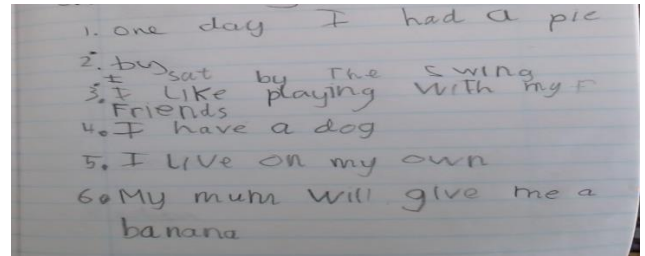 1. one day I had a pie
2. by
I sat by The swing
3. I Like playing with my F
Friends
4. I have a dog
5. I Live on my own
6. My mum will give me a
banana